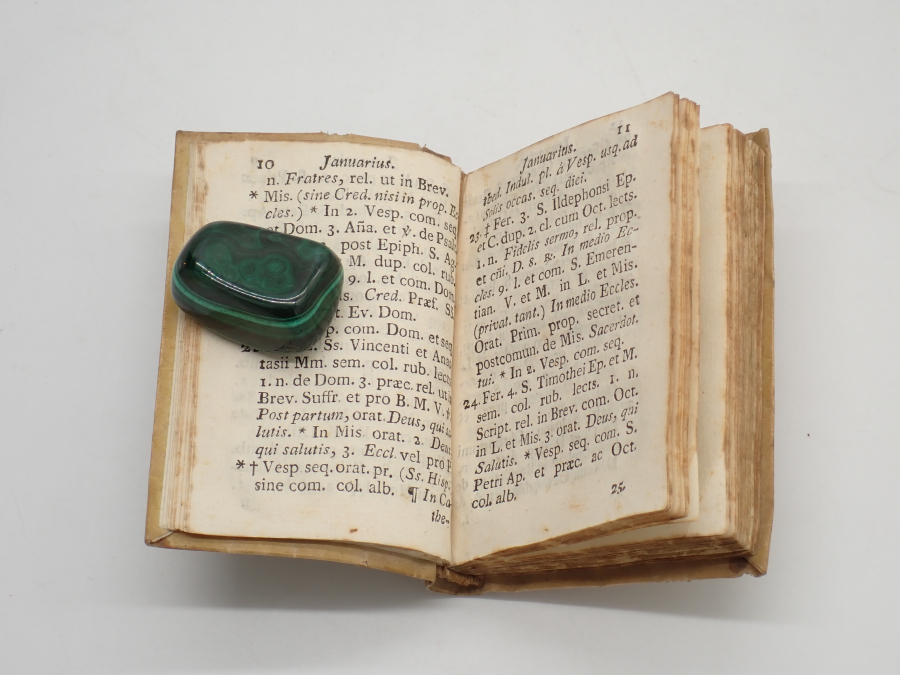 10 Januarius.
n. Fratres, rel. ut in Brev.
* Mis. (sine Cred. nisi in prop. Ec
cles.) * In 2. Vesp. com. seq.
et Dom. 3. Aña. et ℣. de Psalt
post Epiph. S. Ag
M. dup. col. rub.
9. l. et com. Dom
Cred. Præf. SS
Ev. Dom.
com. Dom. et seq
Ss. Vincenti et Anas
tasii Mm. sem. col. rub. lect
1. n. de Dom. 3. præc. rel. ut in
Brev. Suffr. et pro B. M. V. ℣.
Post partum, orat. Deus, qui sa
lutis. * In Mis. orat. 2. Deus
qui salutis, 3. Eccl. vel pro P
* † Vesp. seq. orat. pr. (Ss. Hisp.
sine com. col. alb. ¶ In Ca
the-
Januarius. 11
thed. Indul. pl. à Vesp. usq. ad
Solis occas. seq. diei.
23. † Fer. 3. S. Ildephonsi Ep.
et C. dup. 2. cl. cum Oct. lects.
1. n. Fidelis sermo, rel. prop.
et cñi. D. 8. ℟. In medio Ec-
cles. 9. l. et com. S. Emeren-
tian. V. et M. in L. et Mis.
(privat. tant.) In medio Eccles.
Orat. Prim. prop. secret. et
postcomun. de Mis. Sacerdot.
tui. * In 2. Vesp. com. seq.
24. Fer. 4. S. Timothei Ep. et M.
sem. col. rub. lects. 1. n.
Script. rel. in Brev. com. Oct.
in L. et Mis. 3. orat. Deus, qui
Salutis. * Vesp. seq. com. S.
Petri Ap. et præc. ac Oct.
col. alb.
25.